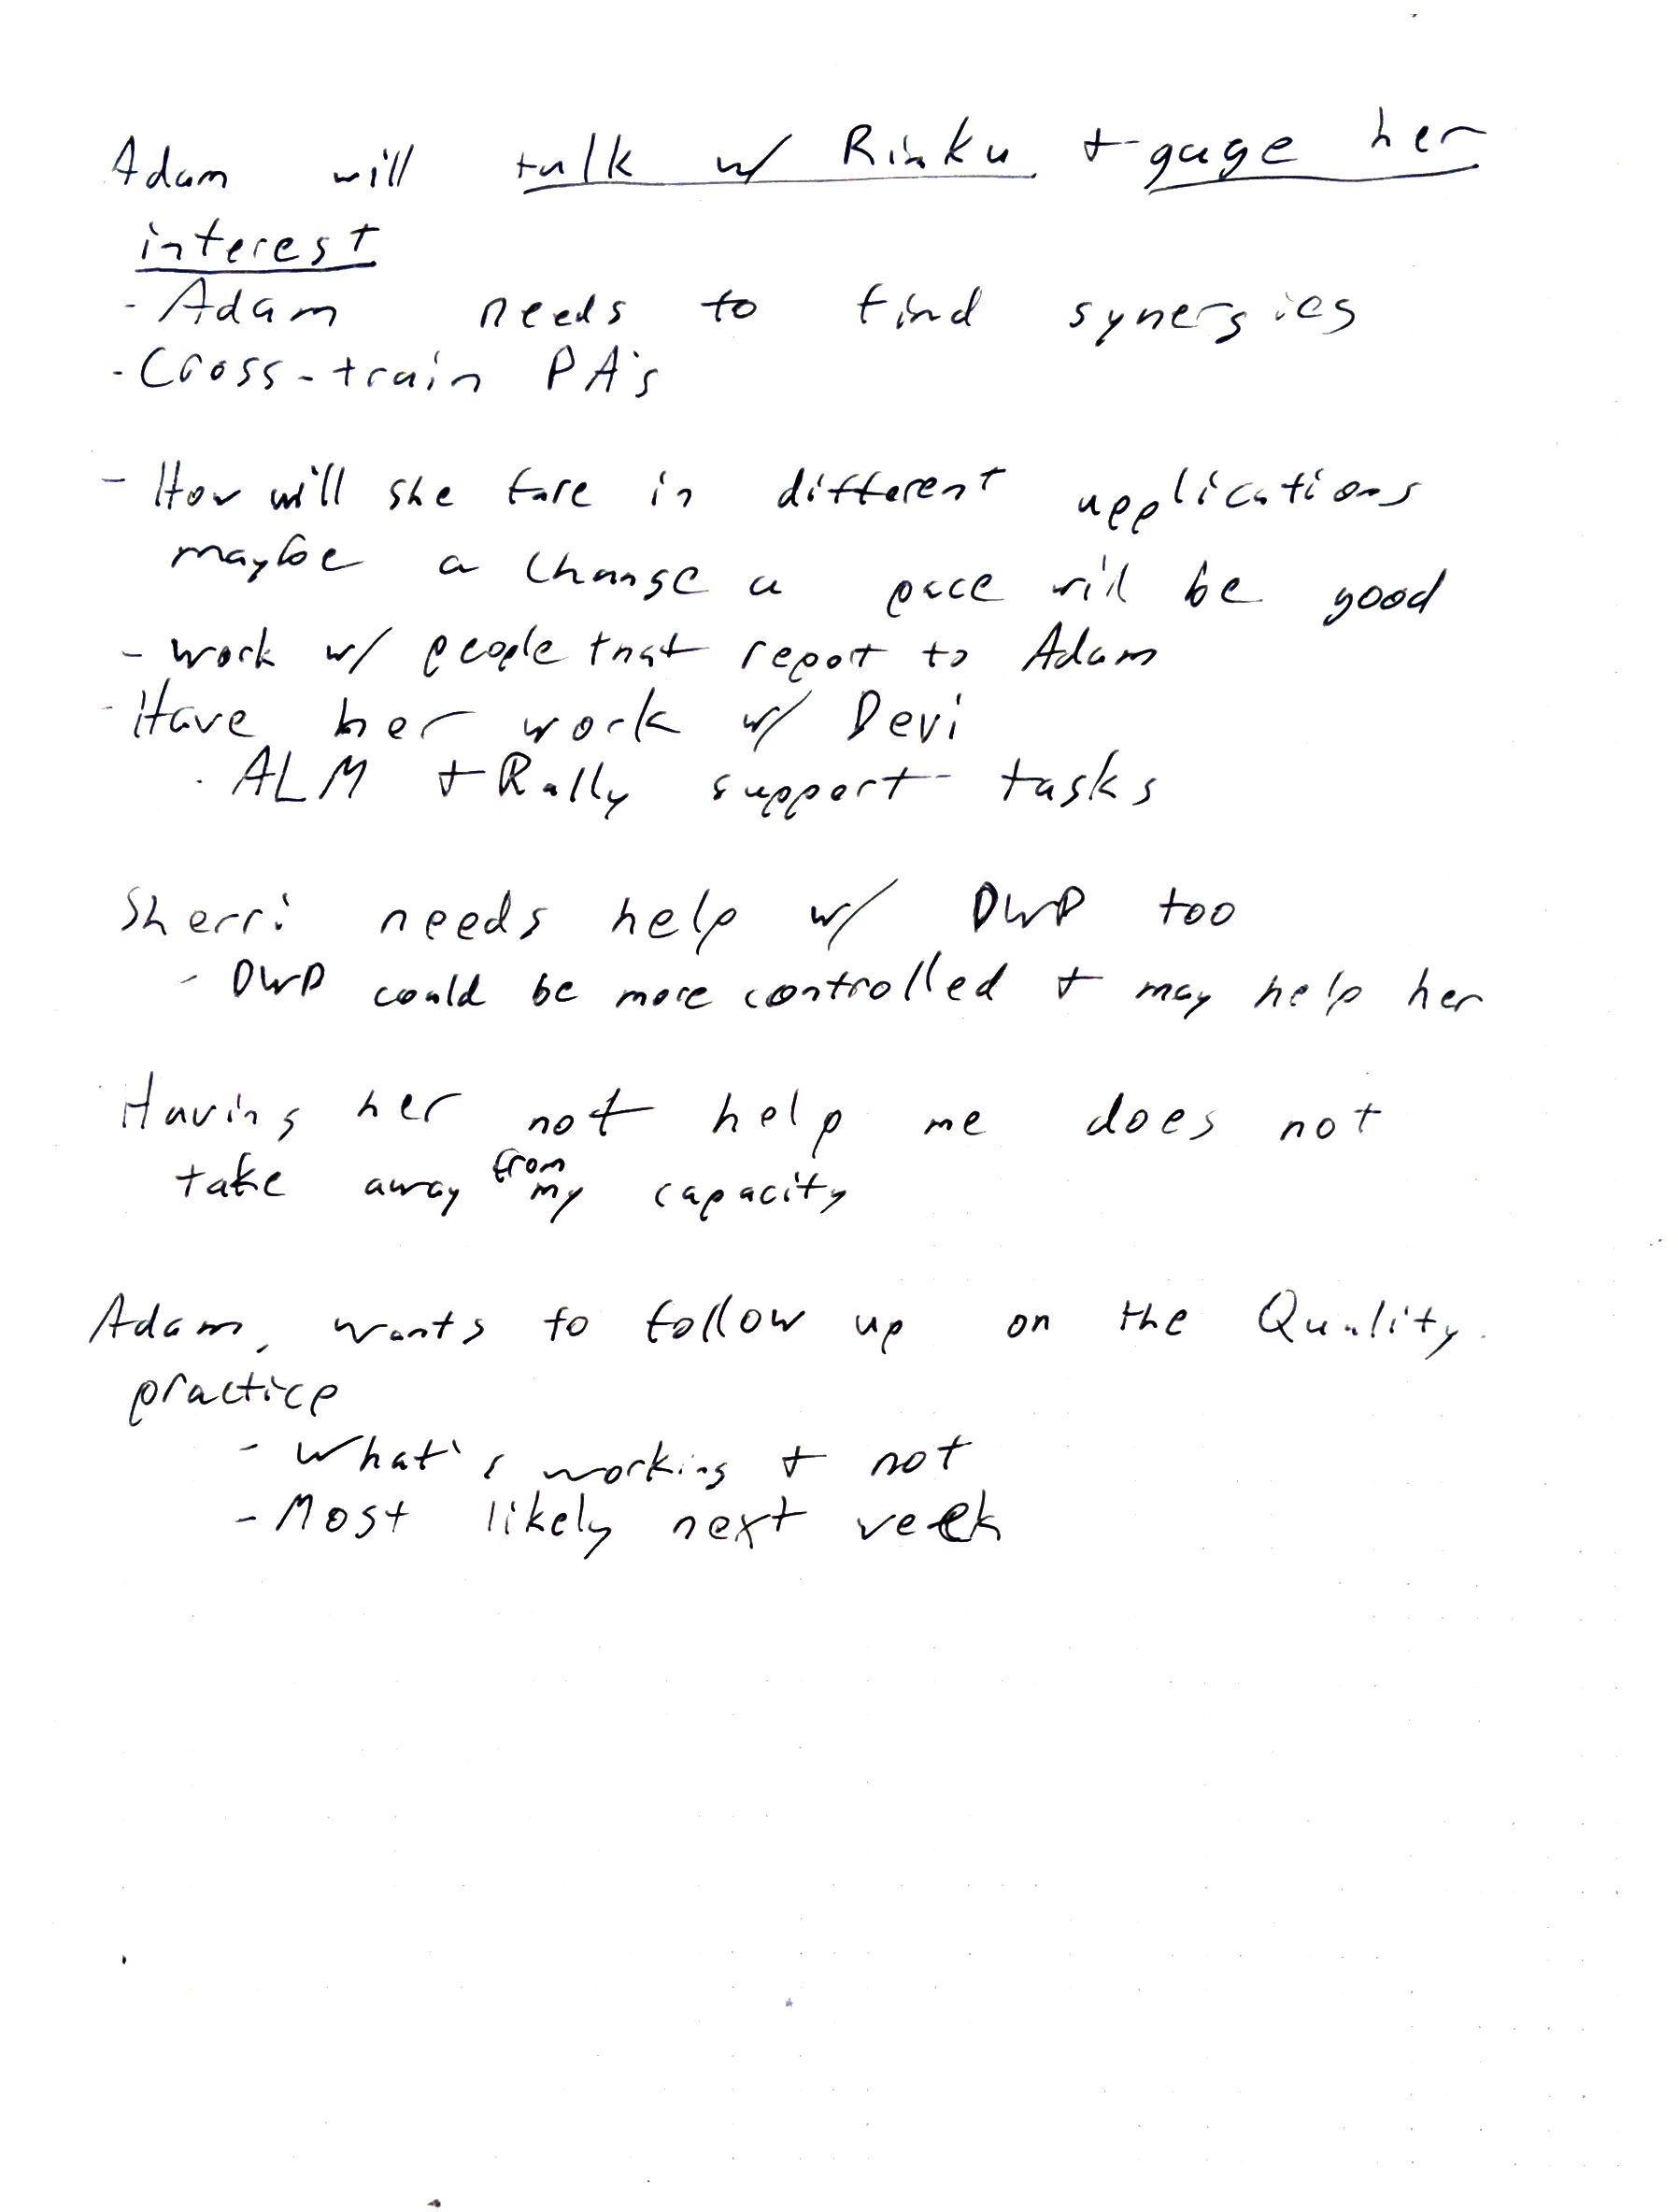 Adam will talk w/ Rinku + gage her
interest
- Adam needs to find synergies
- Cross-train PA's
- How will she fare in different applications
maybe a change a pace will be good
- work w/ people that report to Adam
- Have her work w/ Devi
· ALM + Rally support tasks
Sherri needs help w/ DWP too
- DWP could be more controlled + may help her
Having her not help me does not
take away from my capacity
Adam, wants to follow up on the Quality
practice
- What's working + not
- Most likely next week